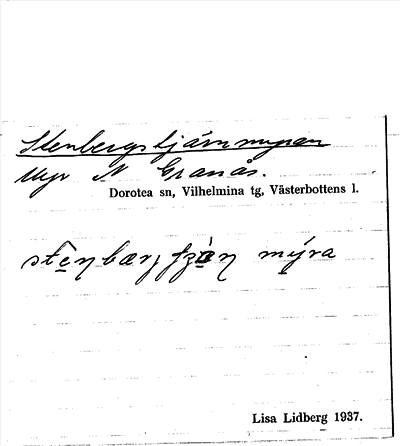 Stenbergstjärnmyran
Myr N Granås.
Dorotea sn, Vilhelmina tg, Västerbottens l.
mýra
Lisa Lidberg 1937.